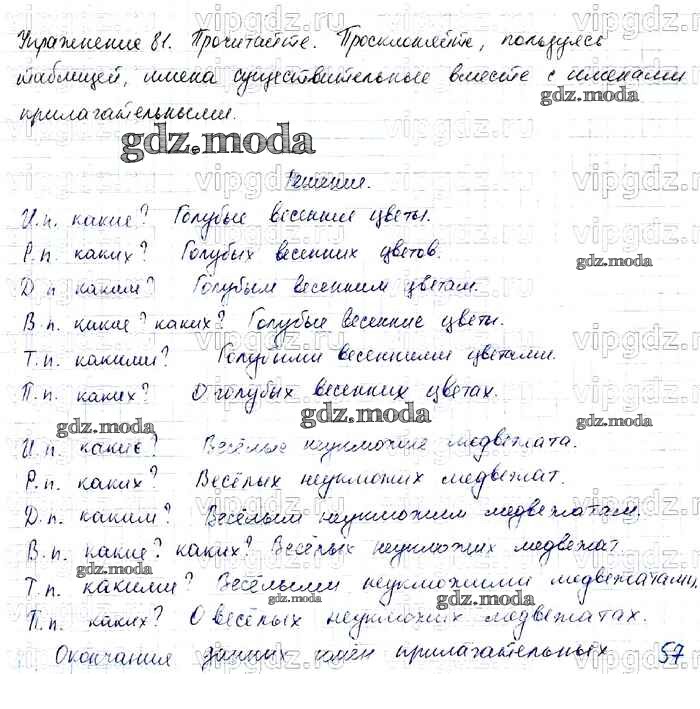 Упражнение 81. Прочитайте. Просклоняйте, пользуясь
таблицей, имена существительные вместе с именами
прилагательными.
gdz.moda
gdz.moda
Решение.
И.п. какие? Голубые весенние цветы.
Р.п. каких? Голубых весенних цветов.
gdz.moda
Д.п каким? Голубым весенним цветам.
В.п. какие? каких? Голубые весенние цветы.
Т.п. какими? Голубыми весенними цветами.
П.п. каких? О голубых весенних цветах.
gdz.moda
gdz.moda
И.п. какие? Весёлые неуклюжие медвежата.
Р.п. каких? Весёлых неуклюжих медвежат.
Д.п. каким? Весёлым неуклюжим медвежатам.
В.п. какие? каких? Весёлых неуклюжих медвежат
gdz.moda
Т.п. какими? Весёлыми неуклюжими медвежатами.
gdz.moda
П.п. каких? О весёлых неуклюжих медвежатах.
Окончания данных имён прилагательных 57
gdz.moda
vipgdz.ru